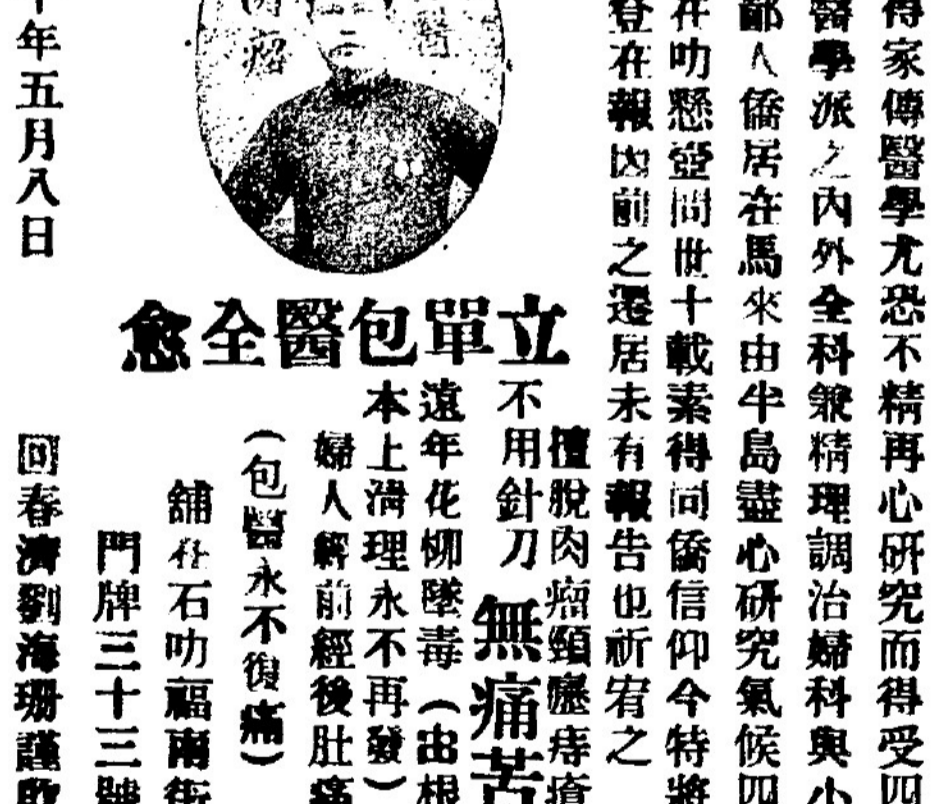 得家傳醫學尤恐不精再心研究而得受四
醫學派之內外全科兼精理調治婦科與小
鄙人僑居在馬來由半島盡心研究氣候四
在叻懸壺問世十載素得同僑信仰今特將
登在報內前之遷居未有報告也祈宥之
立單包醫全愈
擅脫肉瘤頸癧痔瘡
不用針刀 無痛苦
遠年花柳墜毒(出根
本上清理永不再發)
婦人經前經後肚痛
(包醫永不復痛)
舖在石叻福南街
門牌三十三號
回春濟劉海珊謹啟
年五月八日